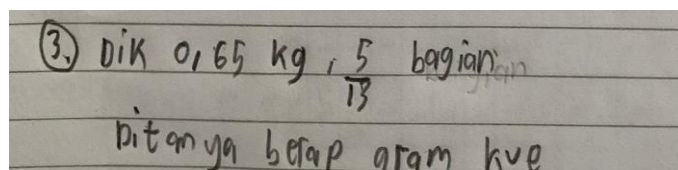 3. Dik 0,65 kg, 5/13 bagian
Ditanya berap gram kue